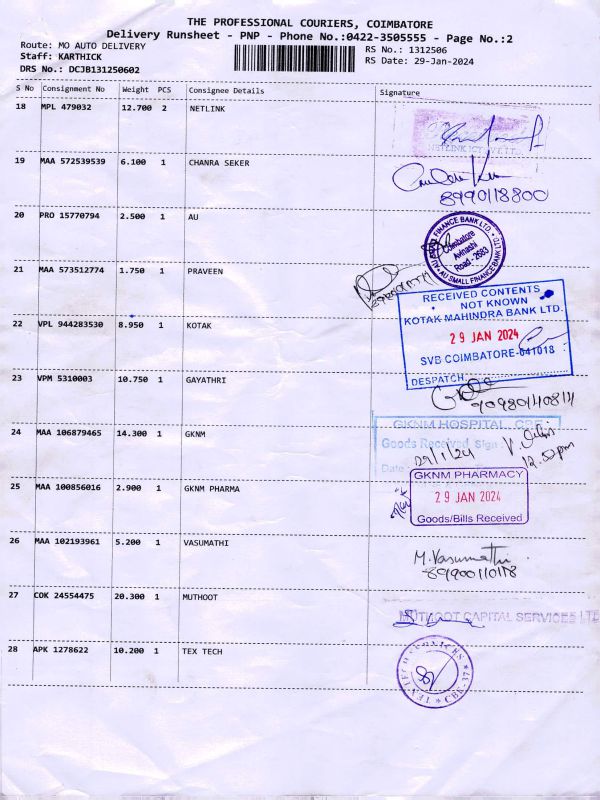 THE PROFESSIONAL COURIERS, COIMBATORE
Delivery Runsheet - PNP - Phone No.:0422-3505555 - Page No.:2
Route: MO AUTO DELIVERY
RS No.: 1312506
Staff: KARTHICK
RS Date: 29-Jan-2024
DRS No.: DCJB131250602
S No Consignment No Weight PCS Consignee Details Signature
18 MPL 479032 12.700 2 NETLINK
NETLINK ICT
19 MAA 572539539 6.100 1 CHANRA SEKER
8990118800
20 PRO 15770794 2.500 1 AU
AU SMALL FINANCE BANK LTD
Coimbatore
Avinashi
Road - 2683
21 MAA 573512774 1.750 1 PRAVEEN
22 VPL 944283530 8.950 1 KOTAK
RECEIVED CONTENTS
NOT KNOWN
KOTAK MAHINDRA BANK LTD.
29 JAN 2024
SVB COIMBATORE-641018
DESPATCH
23 VPM 5310003 10.750 1 GAYATHRI
24 MAA 106879465 14.300 1 GKNM
GKNM HOSPITAL, CBE
Goods Received Sign
29/1/24
12.50pm
Date
25 MAA 100856016 2.900 1 GKNM PHARMA
GKNM PHARMACY
29 JAN 2024
Goods/Bills Received
26 MAA 102193961 5.200 1 VASUMATHI
M.Vasumathi
27 COK 24554475 20.300 1 MUTHOOT
MUTHOOT CAPITAL SERVICES LTD
28 APK 1278622 10.200 1 TEX TECH